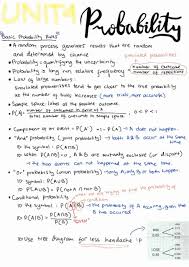 UNIT4
Probability
Basic Probability Rules
• A random process generates results that are random
and determined by chance
• Probability: quantifying the uncertainty
• Probability is a long run relative frequency
number of outcome
number of repetitions
• Law of large numbers
simulated probabilities tend to get closer to the true probability
as the number of trials increases (more trials, more accurate)
• Sample Space: list all the possible outcome
• The probability of an event A: P(A)
0 < P <
• Complement of an event: P(A') = 1 - P(A) → A does not happen
• "And" probability (joint probability): both A & B occur at the same time
to the symbol: P(A∩B)
to When P(A∩B) = 0, A and B are mutually exclusive (or disjoint)
→ the two events can not happened at the same time
• "Or" probability (union probability): only A, only B or both happen
to the symbol: P(A∪B)
to P(A∪B) = P(A) + P(B) - P(A∩B)
• Conditional probability
to the symbol: P(A|B) → the probability of A occurring, given B
has occurred
to P(A|B) = P(A∩B) / P(B)
to Use tree diagram for less headache :P